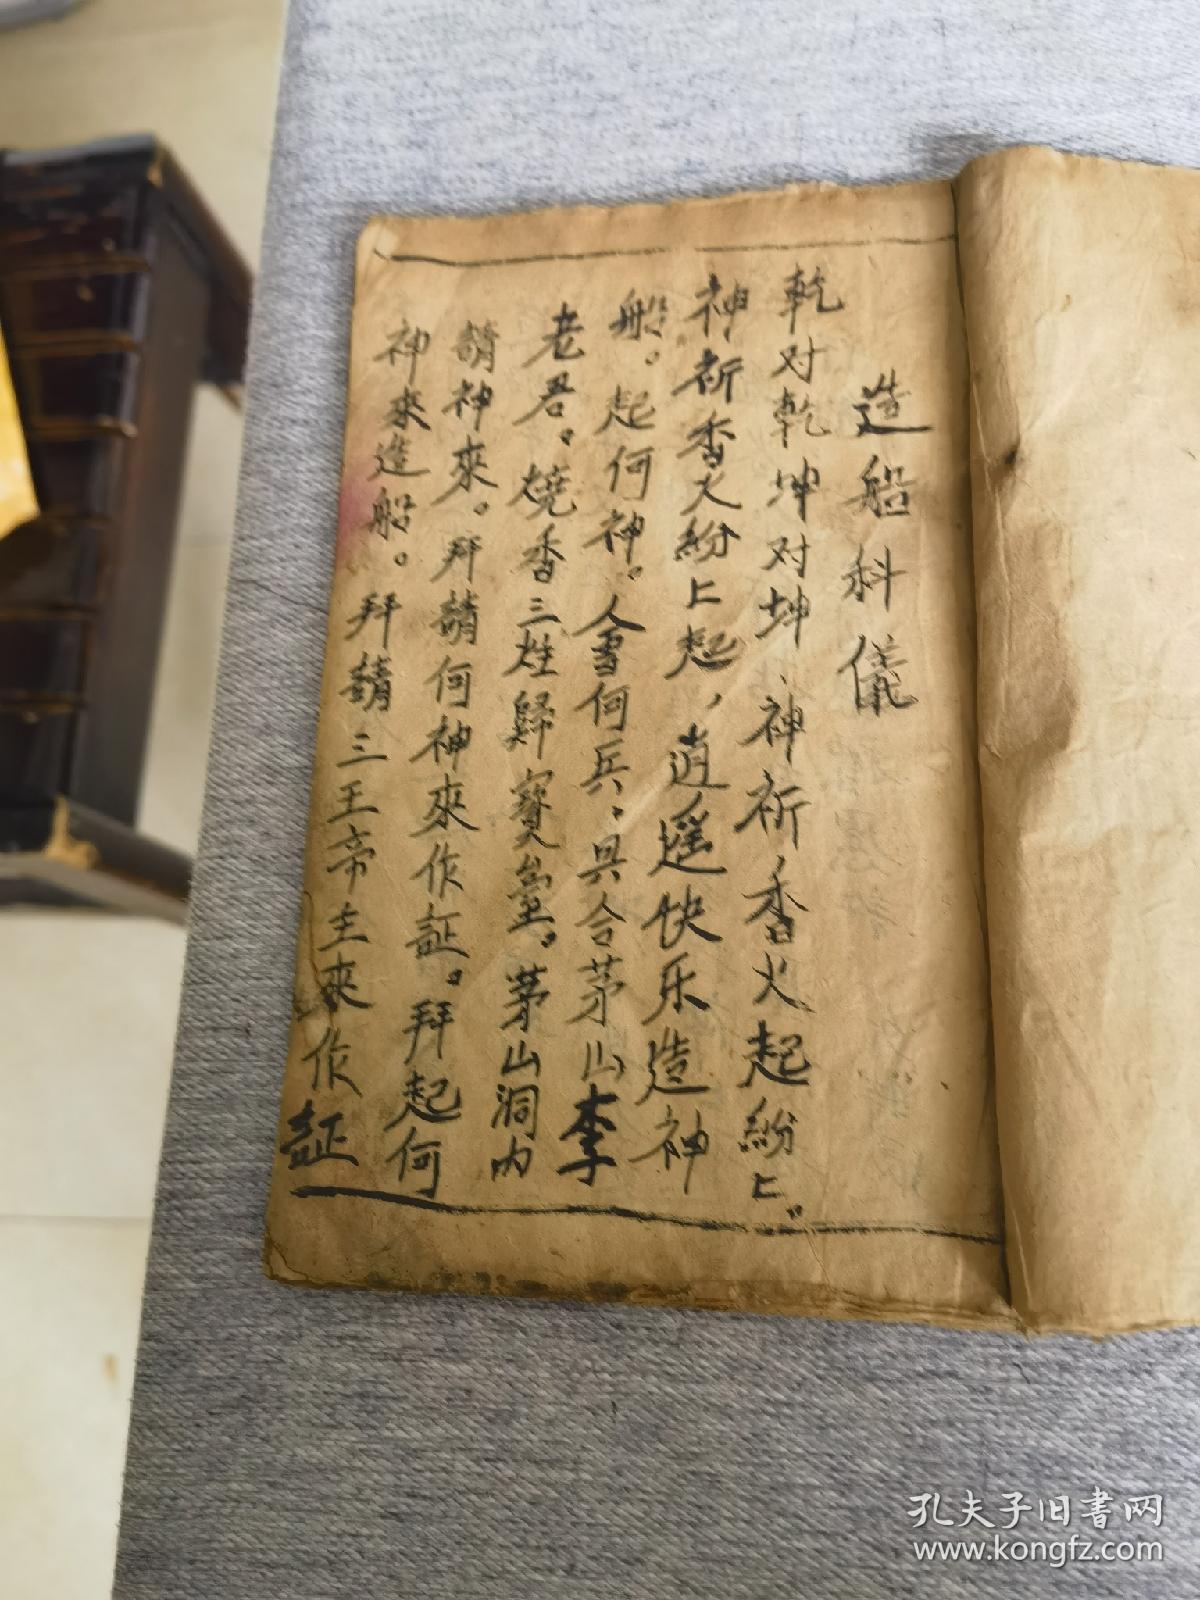 造船科儀
乾对乾坤对坤、神祈香火起紛上。
神祈香火紛上起，逍遥快乐造神
船。起何神。會何兵。具合茅山李
老君。燒香三炷歸寳臺。茅山洞内
請神來。拜請何神來作証。拜起何
神來造船。拜請三王帝主來作証
孔夫子旧书网
www.kongfz.com